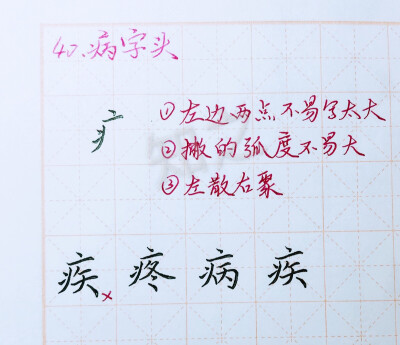 40.病字头
疒
①左边两点不易写太大
②撇的弧度不易大
③左散右聚
疾×疼病疾